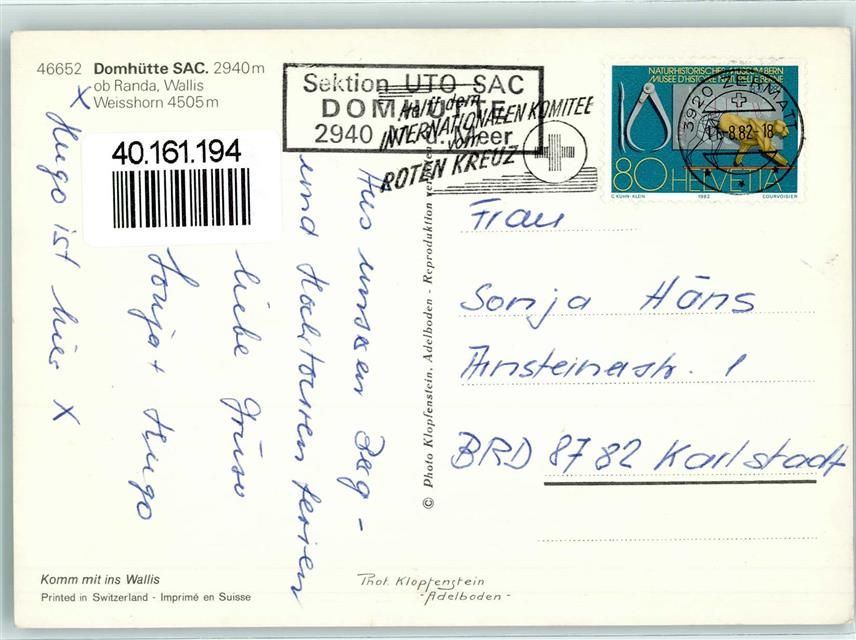 46652 Domhütte SAC. 2940 m
ob Randa, Wallis
Weisshorn 4505 m
Sektion UTO SAC
DOMHÜTTE
2940 ü. Meer
Helft dem
INTERNATIONALEN KOMITEE
vom
ROTEN KREUZ
NATURHISTORISCHES MUSEUM BERN
MUSÉE D'HISTOIRE NATURELLE BERNE
80 HELVETIA
C. KUHN-KLEIN 1982 COURVOISIER
3920 ZERMATT
11-8.82-18
40.161.194
Aus unseren Berg-
und Hochtourenferien
liebe Grüsse
Sonja + Hugo
X Hugo ist hier X
© Photo Klopfenstein, Adelboden - Reproduktion verboten
Frau
Sonja Häns
Ainsteinastr. 1
BRD 8782 Karlstadt
Komm mit ins Wallis
Printed in Switzerland - Imprimé en Suisse
Phot. Klopfenstein
- Adelboden -